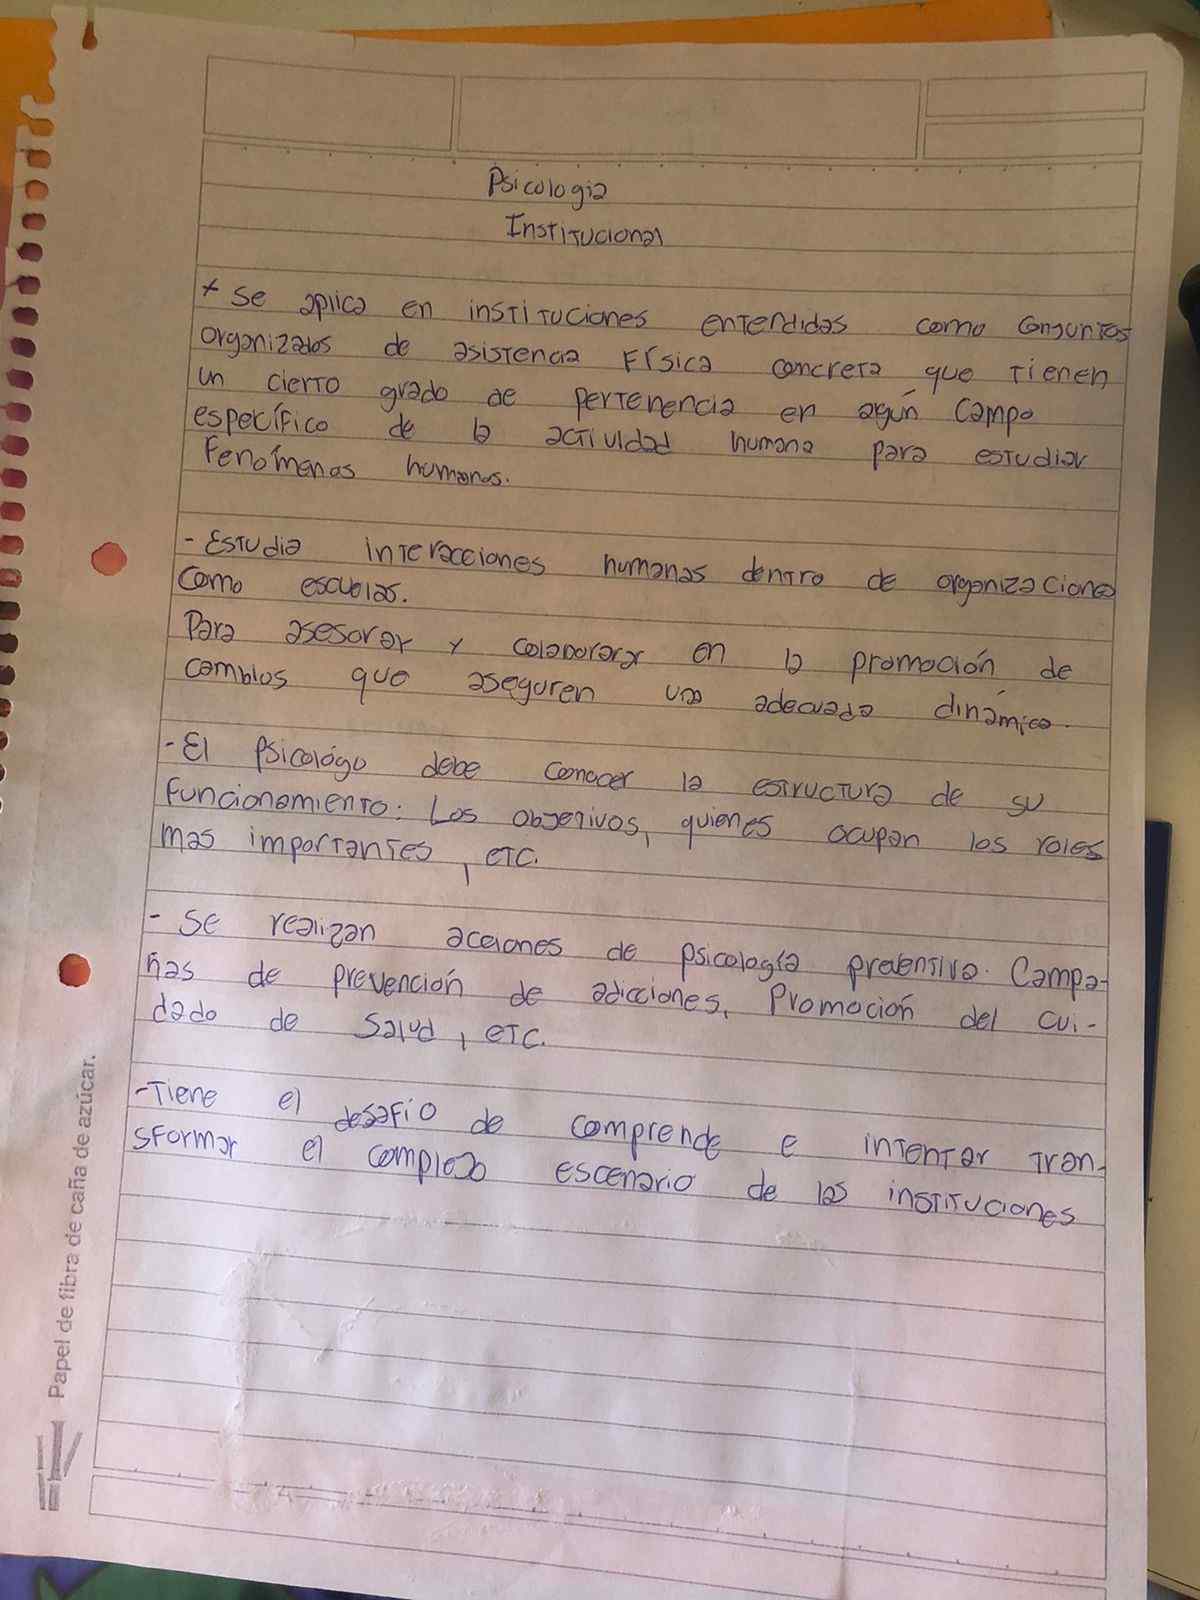 Psicologia
Institucional
+ Se aplica en instituciones entendidas como conjuntos
organizados de asistencia Física concreta que tienen
un cierto grado de pertenencia en agún campo
específico de la actividad humana para estudiar
Fenómenos humanos.
- Estudia interacciones humanas dentro de organizaciones
como escuelas.
Para asesorar y colaborarar en la promoción de
cambios que aseguren una adecuada dinámica.
- El Psicológo debe conocer la estructura de su
Funcionamiento: Los objetivos, quienes ocupan los roles
mas importantes, etc.
- Se realizan acciones de psicología preventiva. Campa-
ñas de prevención de adicciones, Promoción del cui-
dado de Salud, etc.
- Tiene el desafío de comprende e intentar tran-
sformar el complejo escenario de las instituciones
Papel de fibra de caña de azúcar.